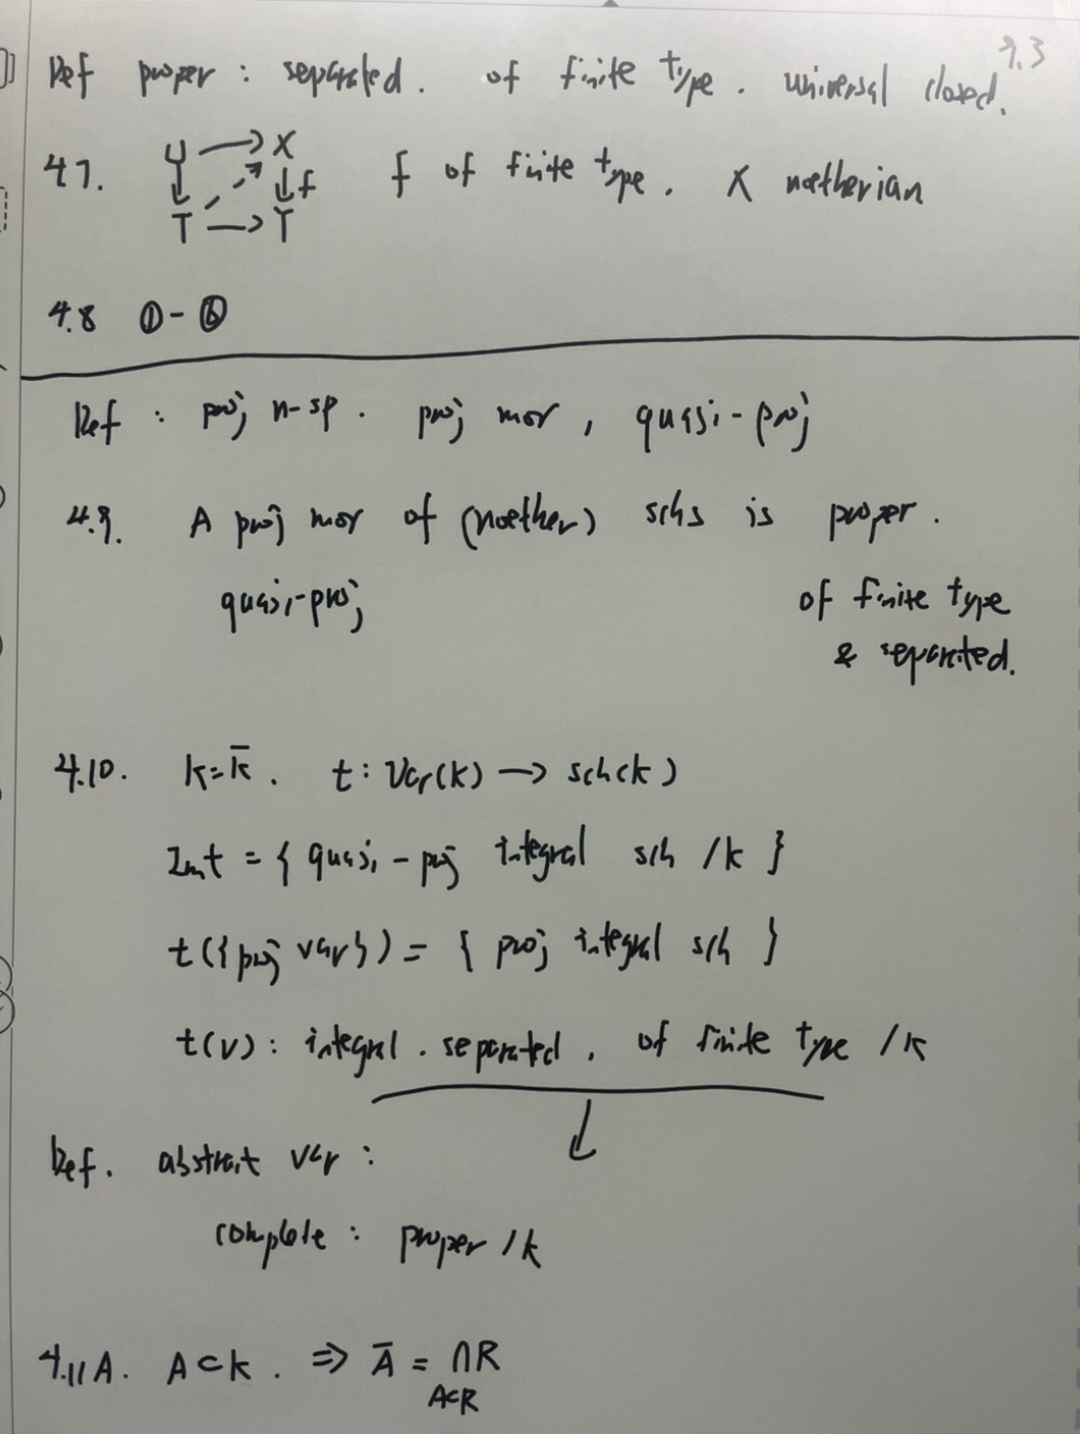 9.3
Def proper : separated. of finite type. universal closed.
4.7. U → X f of finite type. X noetherian
↓ ↓f
T → Y
4.8 ① - ⑥
Def : proj n-sp. proj mor, quasi-proj
4.9. A proj mor of (noether) schs is proper.
quasi-proj of finite type
& separated.
4.10. k=k̄. t: Var(k) → sch(k)
Imt = { quasi-proj integral sch /k }
t({proj var}) = { proj integral sch }
t(V): integral. separated, of finite type /k
Def. abstract var :
complete : proper /k
4.11A. A⊂k. ⇒ Ā = ∩R
A⊂R